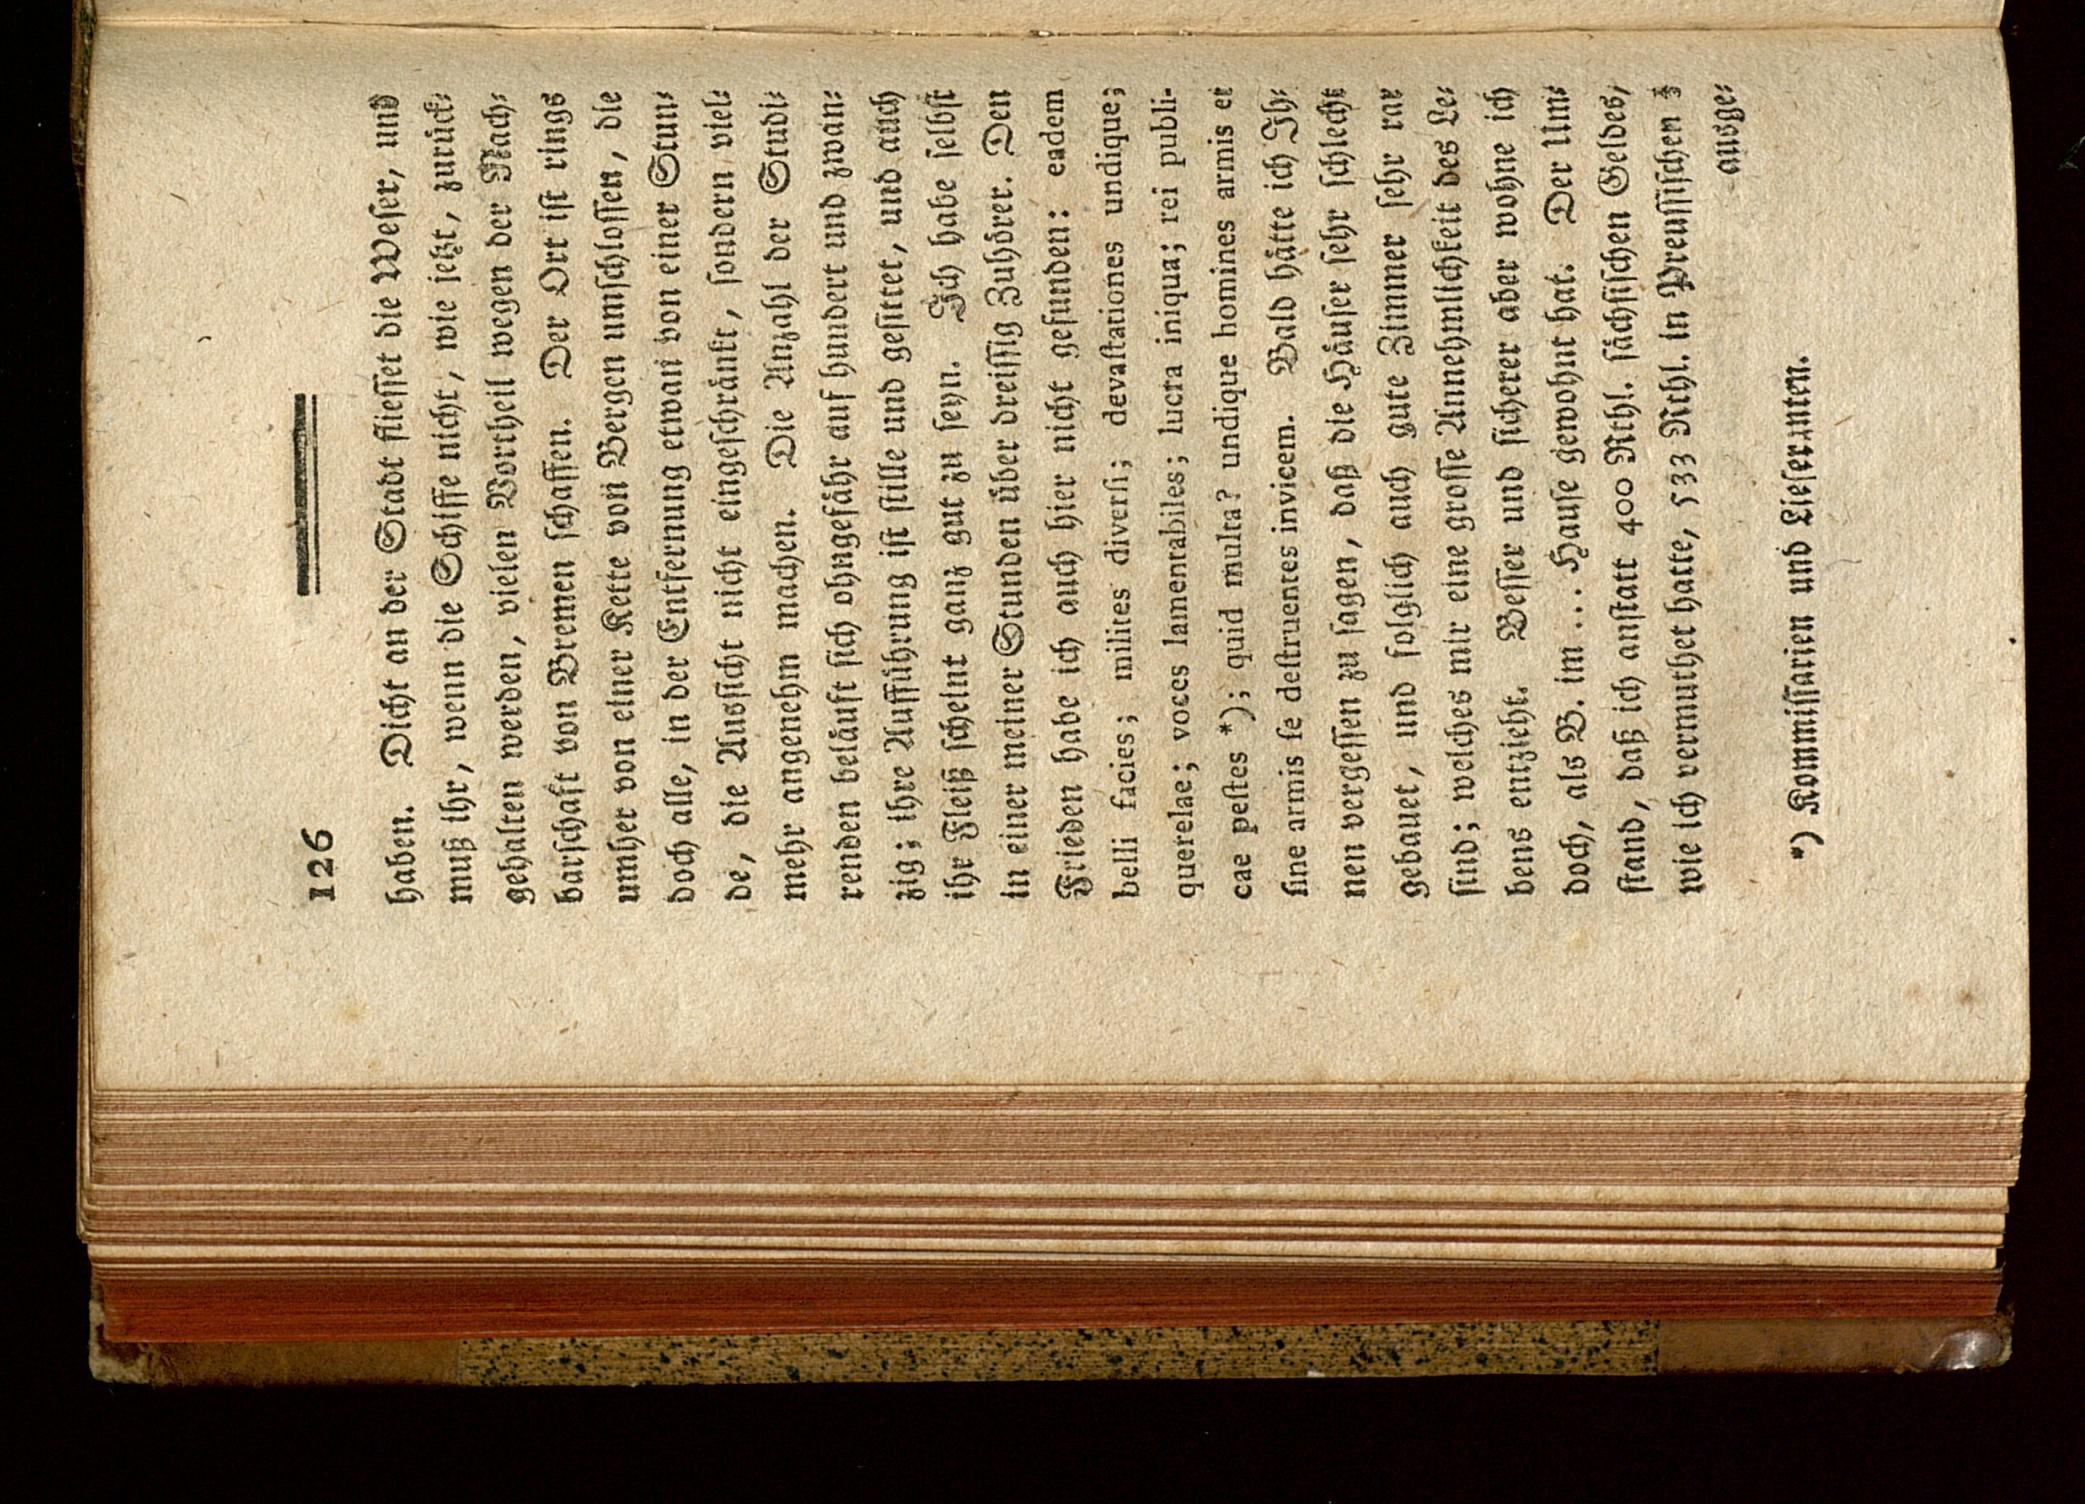 126
haben. Dicht an der Stadt flieſſet die Weſer, und
muß ihr, wenn die Schiffe nicht, wie jetzt, zuruͤck⸗
gehalten werden, vielen Vortheil wegen der Nach⸗
barſchaft von Bremen ſchaffen. Der Ort iſt rings
umher von einer Kette von Bergen umſchloſſen, die
doch alle, in der Entfernung etwan von einer Stun⸗
de, die Ausſicht nicht eingeſchraͤnkt, ſondern viel⸗
mehr angenehm machen. Die Anzahl der Studi⸗
renden belaͤuft ſich ohngefaͤhr auf hundert und zwan⸗
zig; ihre Auffuͤhrung iſt ſtille und geſittet, und auch
ihr Fleiß ſcheint ganz gut zu ſeyn. Ich habe ſelbſt
in einer meiner Stunden uͤber dreiſſig Zuhoͤrer. Den
Frieden habe ich auch hier nicht gefunden: eadem
belli facies; milites diverſi; devaſtationes undique;
querelae; voces lamentabiles; lucra iniqua; rei publi-
cae peſtes *); quid multa? undique homines armis et
ſine armis ſe deſtruentes invicem. Bald haͤtte ich Ih⸗
nen vergeſſen zu ſagen, daß die Haͤuſer ſehr ſchlecht
gebauet, und folglich auch gute Zimmer ſehr rar
ſind; welches mir eine groſſe Annehmlichkeit des Le⸗
bens entzieht. Beſſer und ſicherer aber wohne ich
doch, als B. im ... Hauſe gewohnt hat. Der Um⸗
ſtand, daß ich anſtatt 400 Rthl. ſaͤchſiſchen Geldes,
wie ich vermuthet hatte, 533 Rthl. in Preuſſiſchen ⅓
ausge⸗
*) Kommiſſarien und Lieferanten.